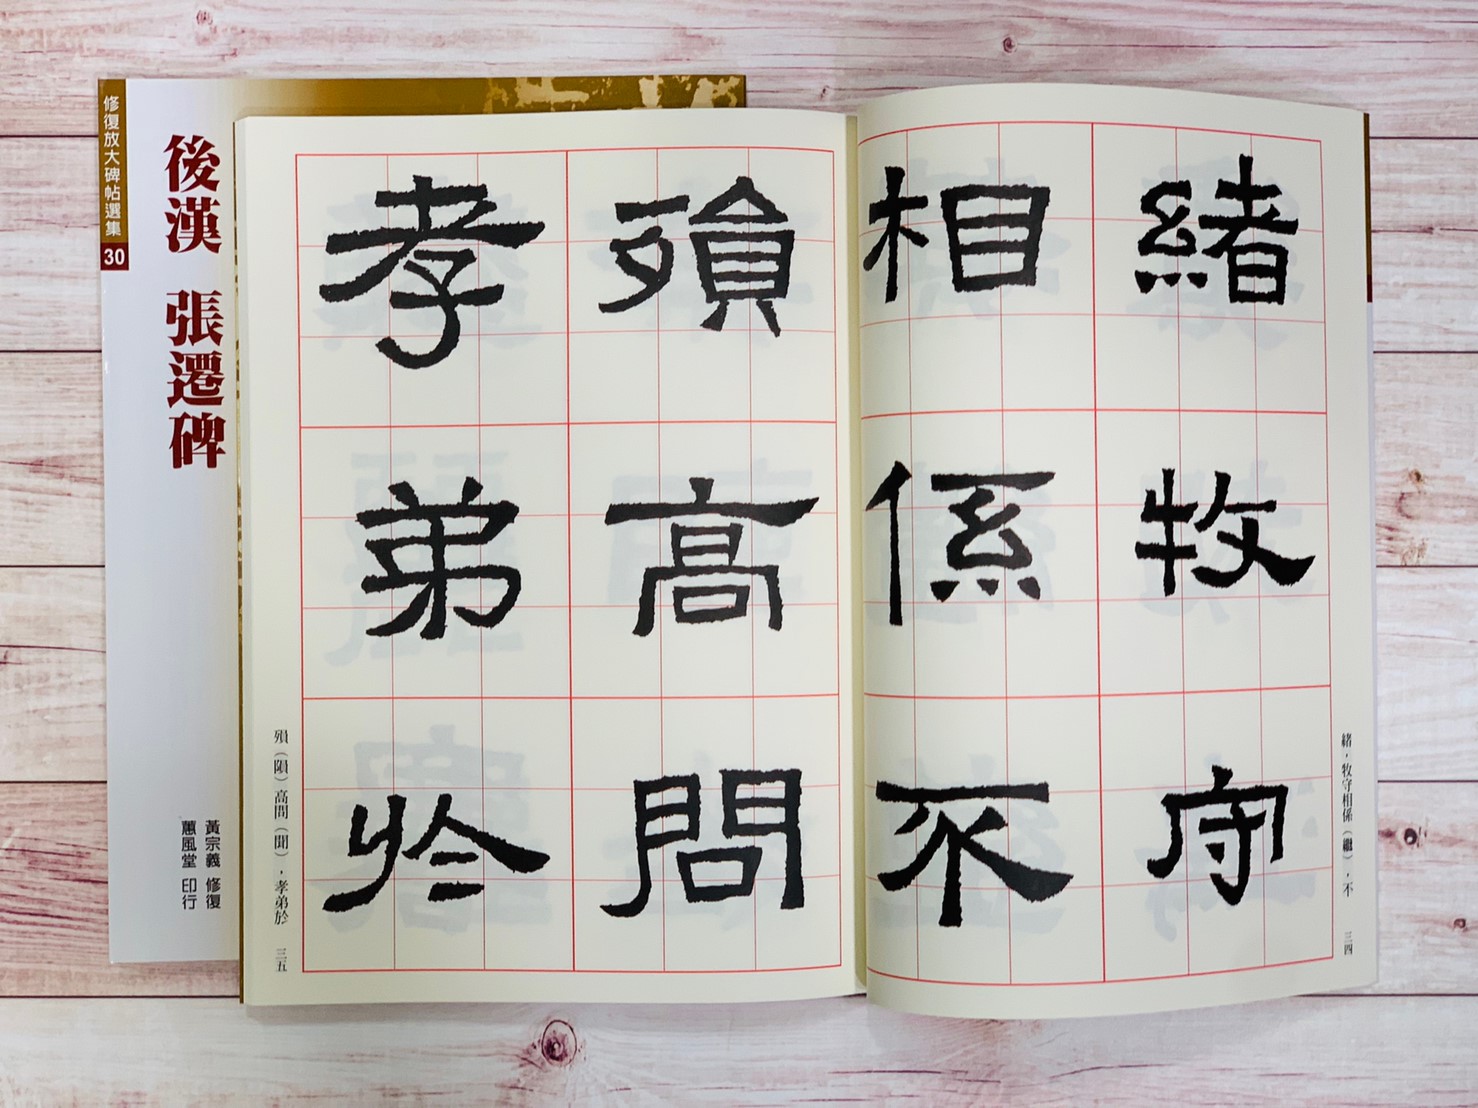 修復放大碑帖選集
30
後漢 張遷碑
黃宗義 修復
蕙風堂 印行
緒牧守
相係不
殞高問
孝弟於
緒,牧守相係(繼),不
三四
殞(隕)高問(聞),孝弟於
三五